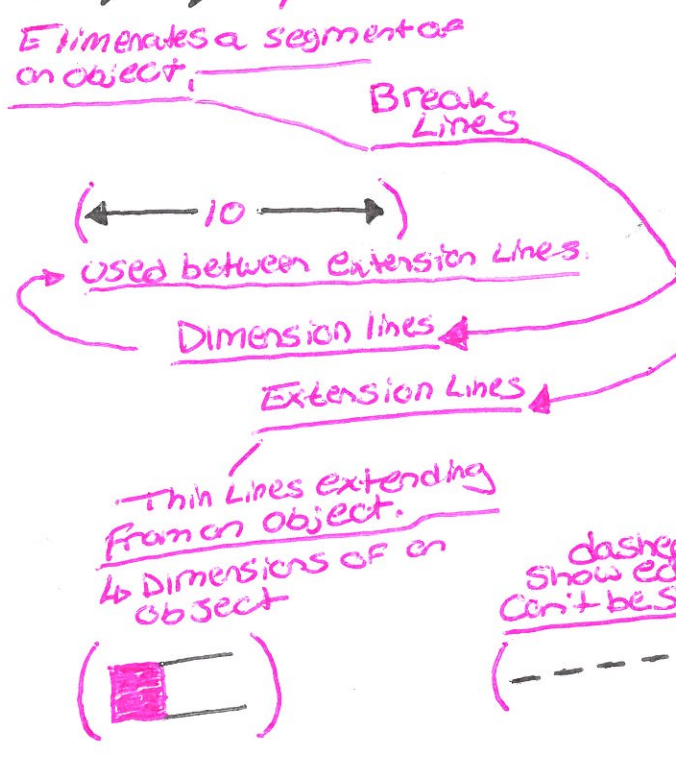 Elimenates a segment of
an object.
Break
Lines
10
Used between extension Lines.
Dimension lines
Extension Lines
Thin Lines extending
From an object.
↳ Dimensions of an
object
dashe
Show ed
Can't be s